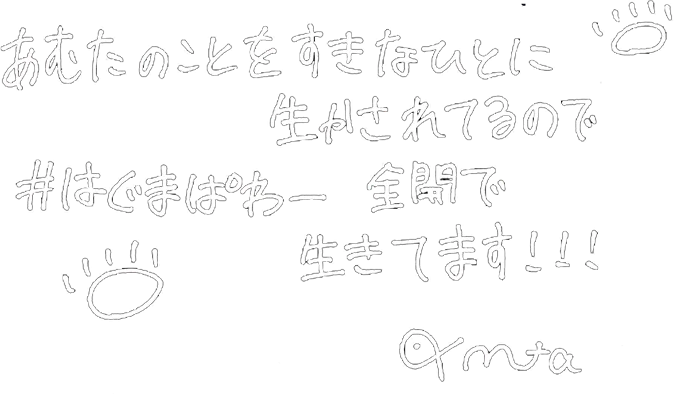 あむたのことをすきなひとに
生かされてるので
#はぐまぱわー 全開で
生きてます!!!
amta